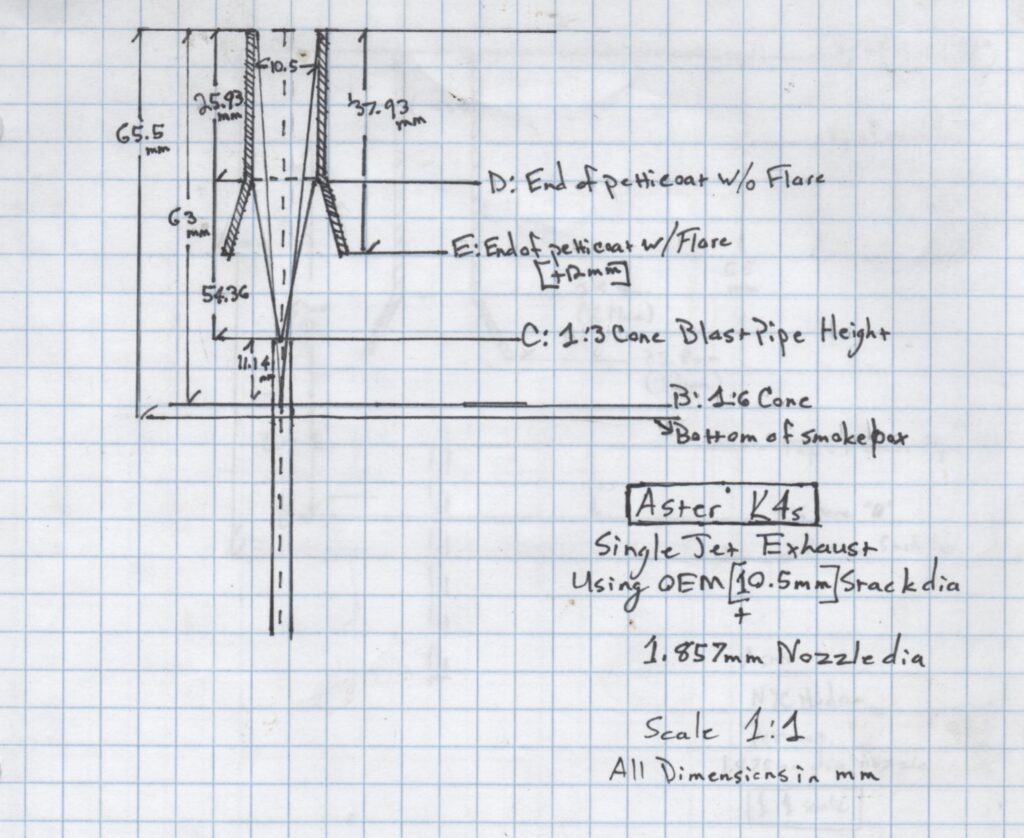 10.5
25.93
mm
37.93
mm
65.5
mm
D: End of petticoat w/o Flare
63
mm
E: End of petticoat w/Flare
[+12mm]
54.36
C: 1:3 Cone Blast Pipe Height
11.14
mm
B: 1:6 Cone
Bottom of smokebox
Aster K4s
Single Jet Exhaust
Using OEM [10.5mm] Stack dia
+
1.857mm Nozzle dia
Scale 1:1
All Dimensions in mm